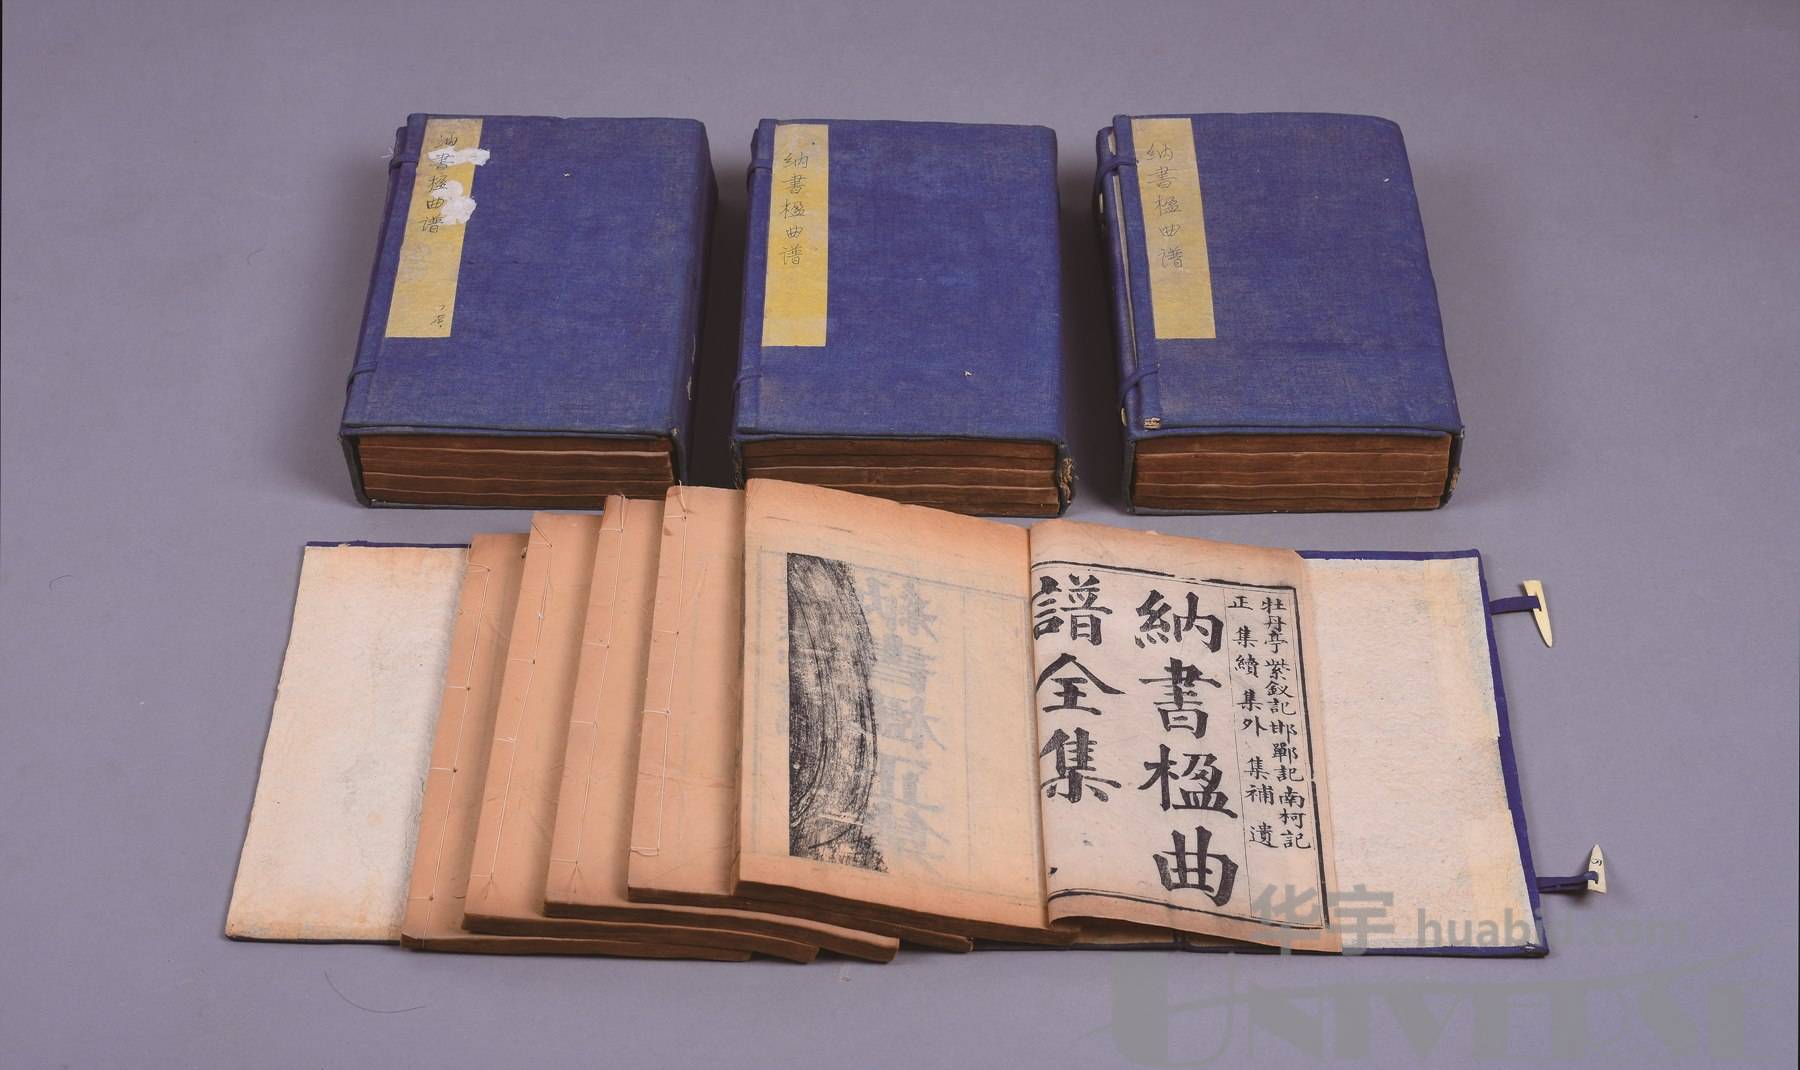 納書楹曲谱
納書楹曲谱
納書楹曲谱
牡丹亭紫釵記邯鄲記南柯記
正集續集外集補遺
納書楹曲
譜全集
华宇 huabid.com
UNIVERSE